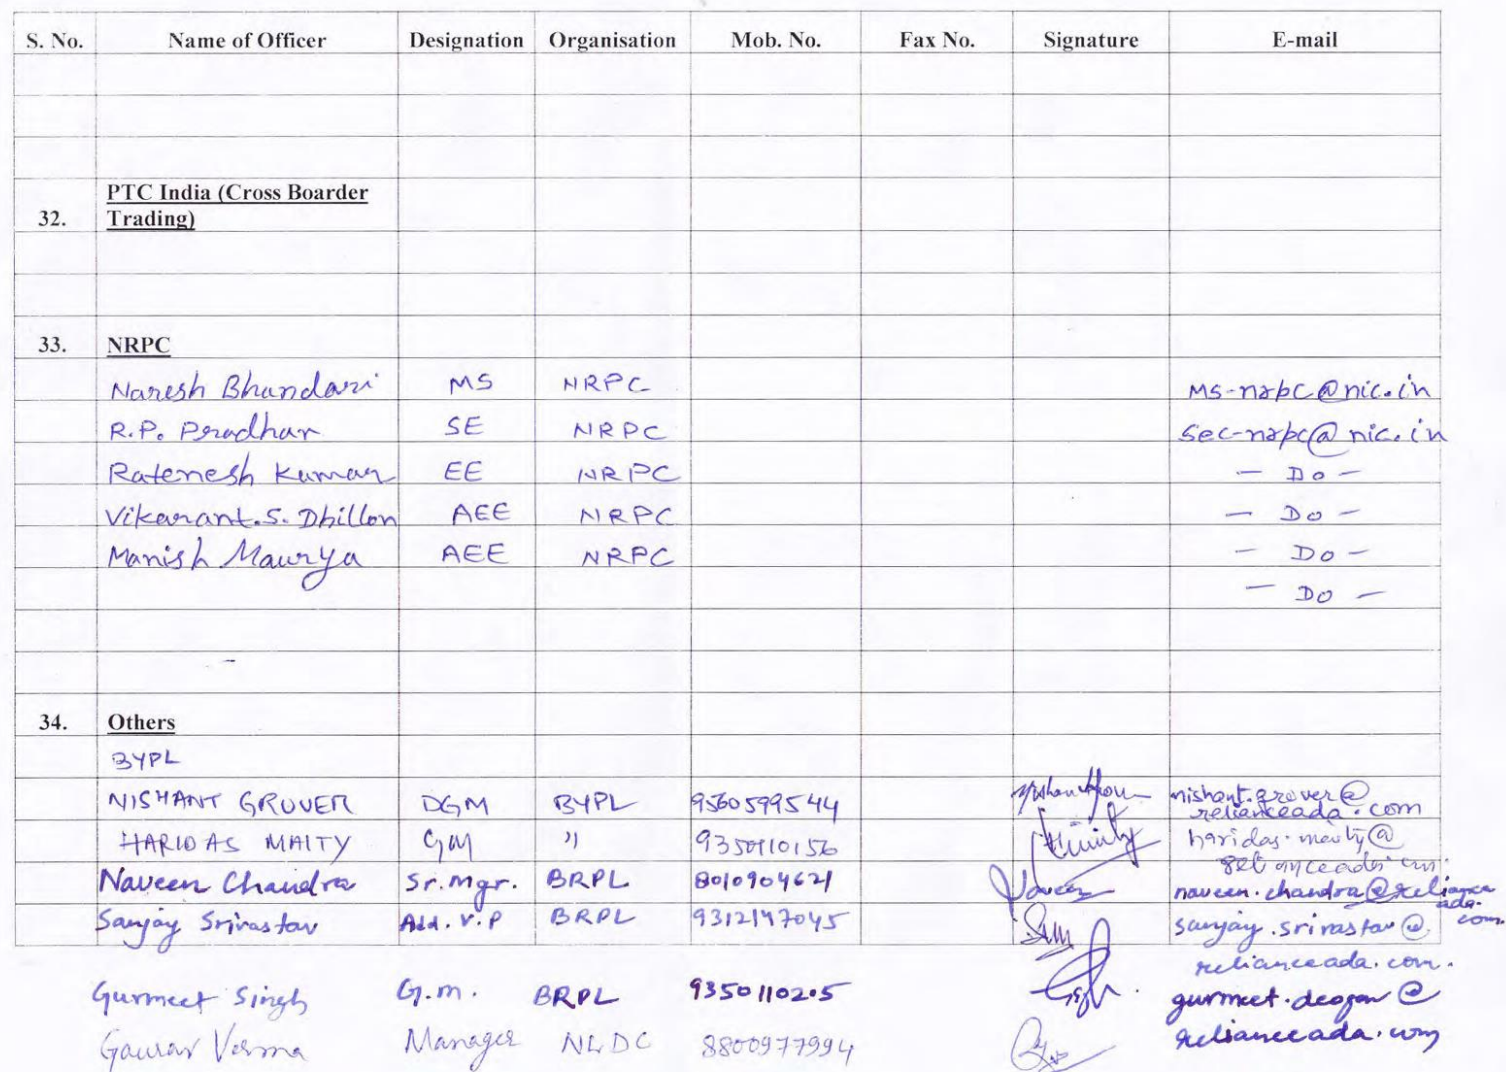 S. No. Name of Officer Designation Organisation Mob. No. Fax No. Signature E-mail
PTC India (Cross Boarder
32. Trading)
33. NRPC
Naresh Bhandari MS NRPC MS-nrpc@nic.in
R.P. Pradhan SE NRPC Sec-nrpc@nic.in
Ratenesh Kumar EE NRPC - Do -
Vikarant.S. Dhillon AEE NRPC - Do -
Manish Maurya AEE NRPC - Do -
- Do -
34. Others
BYPL
NISHANT GROVER DGM BYPL 9560599544 nishant.grover@
relianceada.com
HARIDAS MAITY GM " haridas.maity@
Naveen Chandra Sr. Mgr. BRPL 8010904621 Naveen naveen.chandra@reliance
ada.
com
Sanjay Srivastav Add. V.P BRPL 9312147045 sanjay.srivastav@
relianceada.com.
Gurmeet Singh G.m. BRPL 9350110205 gurmeet.deogan@
relianceada.com
Gaurav Verma Manager NLDC 8800977994